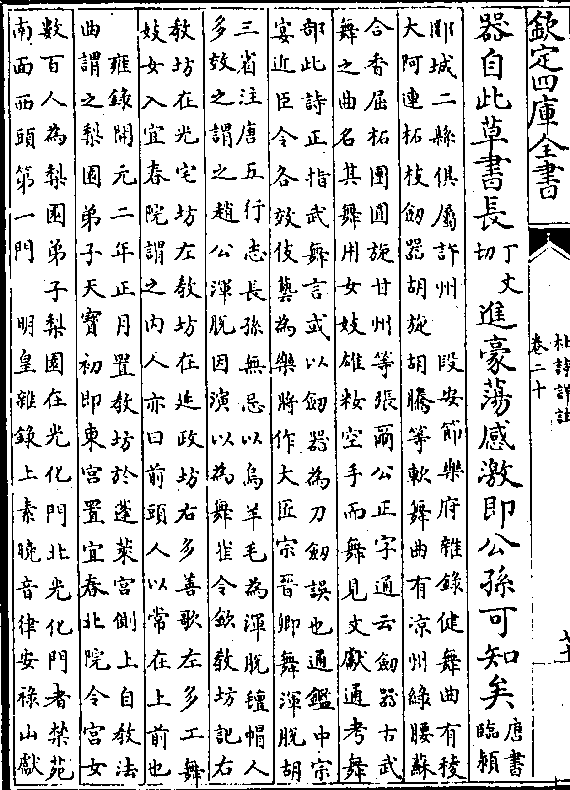 欽定四庫全書
杜詩詳註
卷二十
器自此草書長丁丈切進豪蕩感激即公孫可知矣唐書臨潁
郾城二縣俱屬許州 段安節樂府雜錄健舞曲有稜
大阿連柘枝劒器胡旋胡騰等軟舞曲有涼州綠腰蘇
合香屈柘團圓旋甘州等張爾公正字通云劒器古武
舞之曲名其舞用女妓雄粧空手而舞見文獻通考舞
部此詩正指武舞言或以劒器為刀劒誤也通鑑中宗
宴近臣令各效伎藝為樂將作大匠宗晉卿舞渾脫胡
三省注唐五行志長孫無忌以烏羊毛為渾脫氊帽人
多效之謂之趙公渾脫因演以為舞崔令欽教坊記右
教坊在光宅坊左教坊在延政坊右多善歌左多工舞
妓女入宜春院謂之內人亦曰前頭人以常在上前也
雍錄開元二年正月置教坊於蓬萊宮側上自教法
曲謂之梨園弟子天寶初即東宮置宜春北院令宮女
數百人為梨園弟子梨園在光化門北光化門者禁苑
南面西頭第一門 明皇雜錄上素曉音律安祿山獻